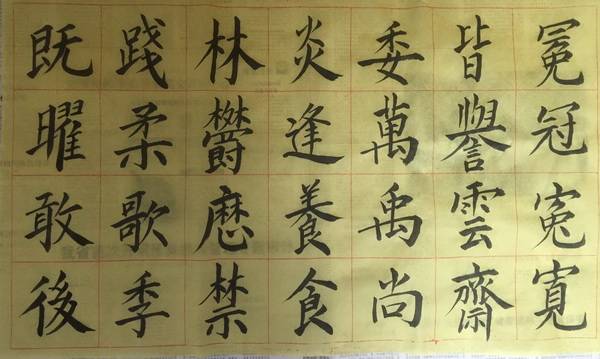 冕冠冤寬
皆譽雲齋
委萬禹尚
炎逢養食
林欝禁
踐柔歌季
既曜敢後